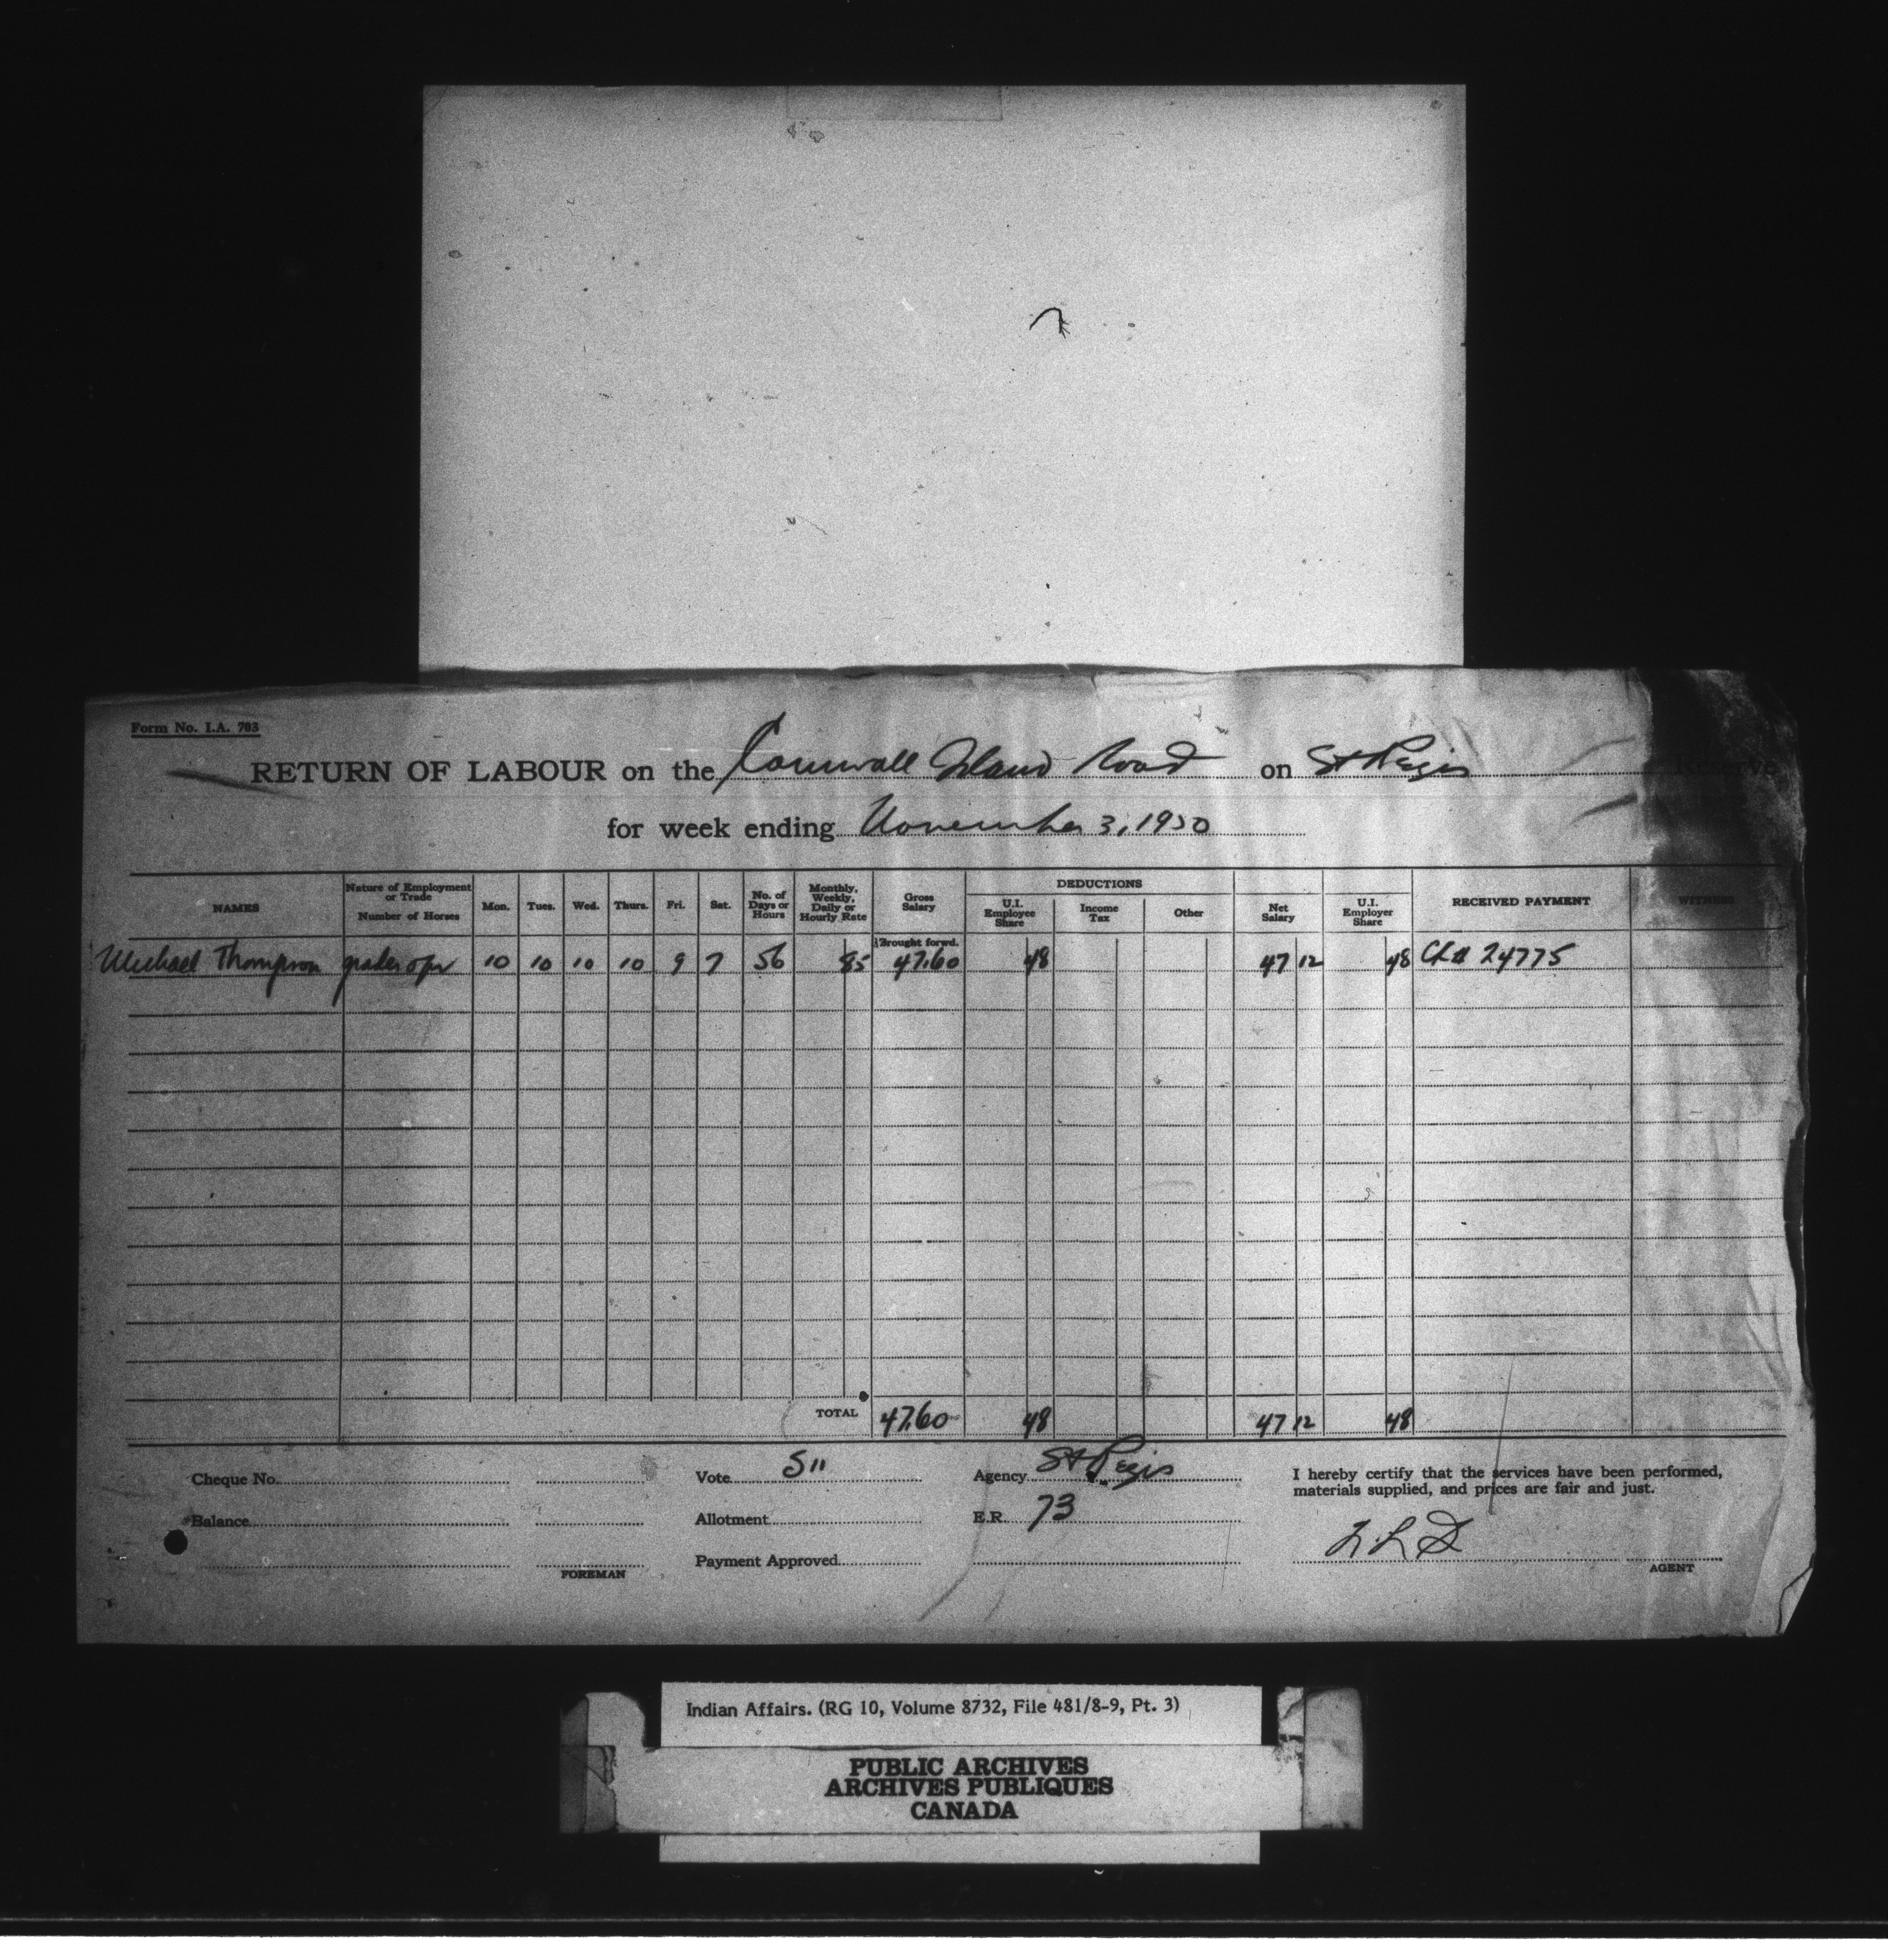 Form No. I.A. 703
RETURN OF LABOUR on the Cornwall Island Road on St Regis Reserve
for week ending November 3, 1950
NAMES Nature of Employment or Trade Number of Horses Mon. Tues. Wed. Thurs. Fri. Sat. No. of Days or Hours Monthly, Weekly, Daily or Hourly Rate Gross Salary DEDUCTIONS U.I. Employee Share Income Tax Other Net Salary U.I. Employer Share RECEIVED PAYMENT WITNESS
Brought forwd.
Michael Thompson grader opr 10 10 10 10 9 7 56 85 47.60 48 47 12 48 Ch# 24775
TOTAL 47.60 48 47 12 48
Cheque No. Vote 511 Agency St Regis I hereby certify that the services have been performed,
materials supplied, and prices are fair and just.
Balance Allotment E.R. 73
Payment Approved
FOREMAN AGENT
Indian Affairs. (RG 10, Volume 8732, File 481/8-9, Pt. 3)
PUBLIC ARCHIVES
ARCHIVES PUBLIQUES
CANADA